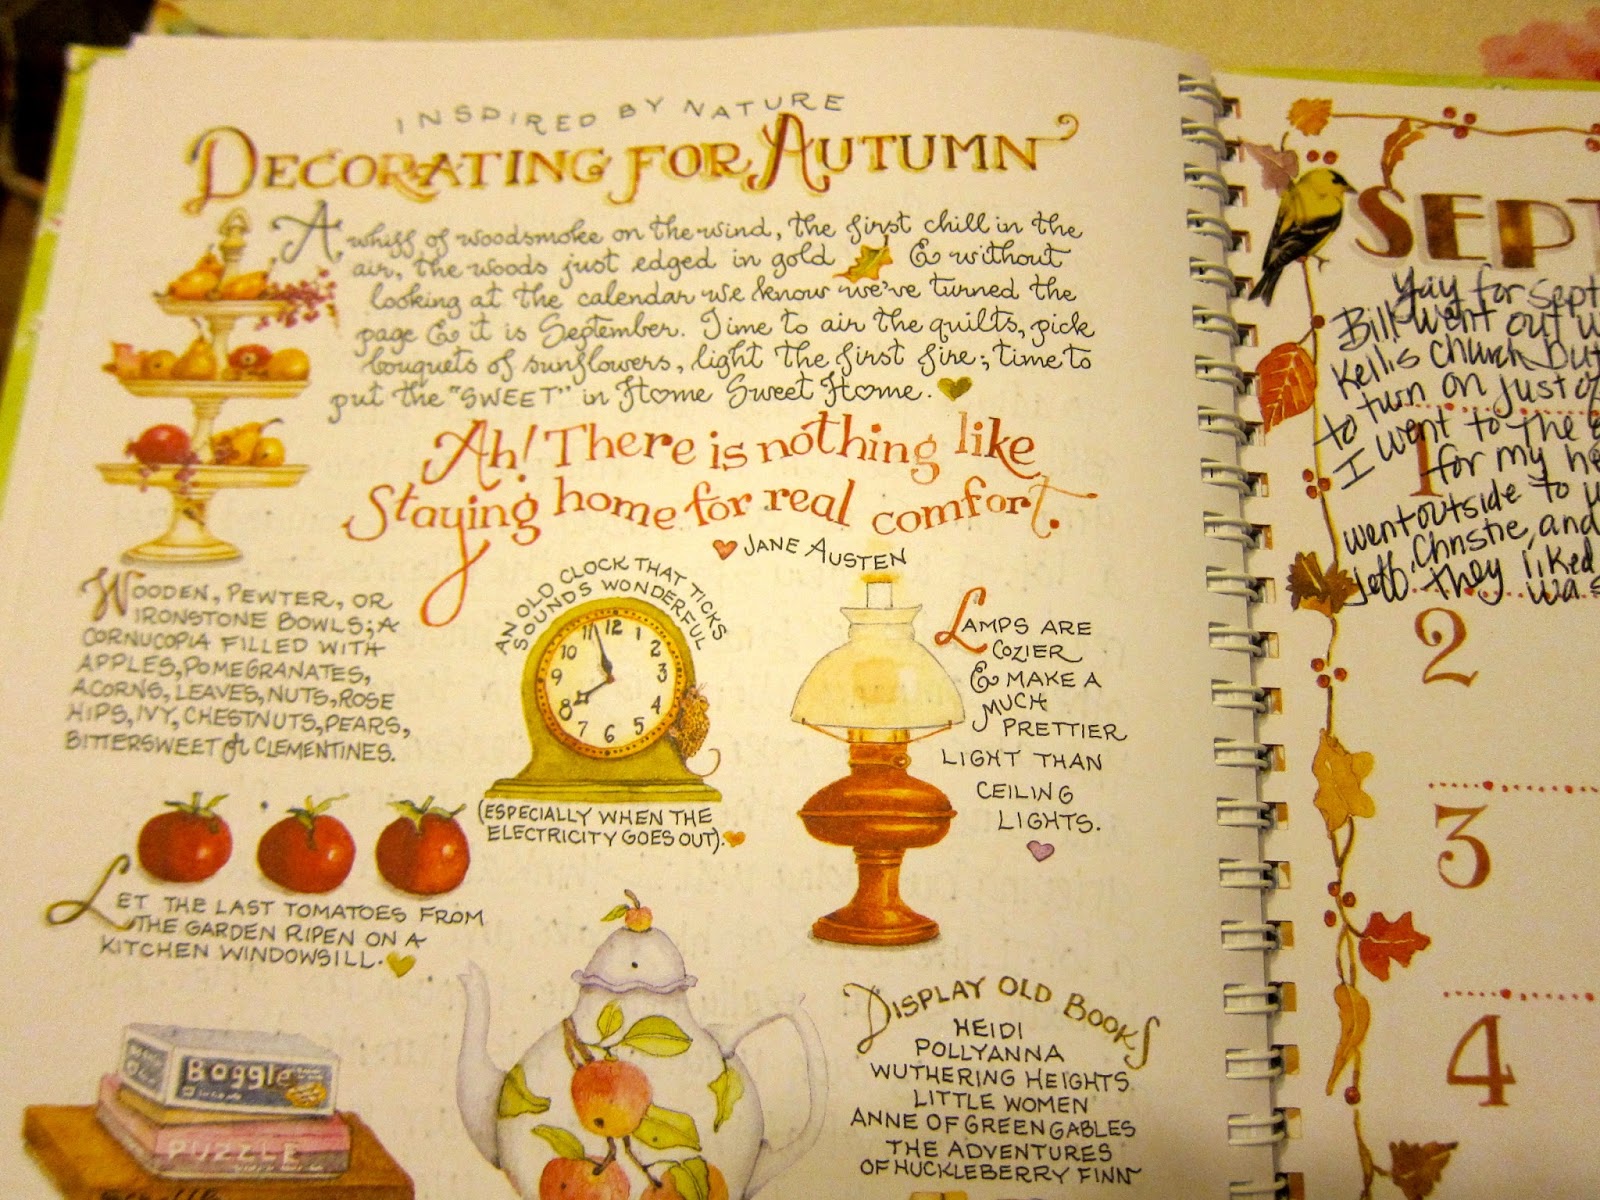 INSPIRED BY NATURE
DECORATING FOR AUTUMN
A whiff of woodsmoke on the wind, the first chill in the
air, the woods just edged in gold & without
looking at the calendar we know we've turned the
page & it is September. Time to air the quilts, pick
bouquets of sunflowers, light the first fire; time to
put the "SWEET" in Home Sweet Home.
Ah! There is nothing like
staying home for real comfort.
JANE AUSTEN
WOODEN, PEWTER, OR
IRONSTONE BOWLS; A
CORNUCOPIA FILLED WITH
APPLES, POMEGRANATES,
ACORNS, LEAVES, NUTS, ROSE
HIPS, IVY, CHESTNUTS, PEARS,
BITTERSWEET or CLEMENTINES.
AN OLD CLOCK THAT TICKS
SOUNDS WONDERFUL
11 12 1
10 2
9 3
8 4
7 6 5
(ESPECIALLY WHEN THE
ELECTRICITY GOES OUT).
LAMPS ARE
COZIER
& MAKE A
MUCH
PRETTIER
LIGHT THAN
CEILING
LIGHTS.
LET THE LAST TOMATOES FROM
THE GARDEN RIPEN ON A
KITCHEN WINDOWSILL.
Boggle
PUZZLE
DISPLAY OLD BOOKS
HEIDI
POLLYANNA
WUTHERING HEIGHTS
LITTLE WOMEN
ANNE OF GREEN GABLES
THE ADVENTURES
OF HUCKLEBERRY FINN
SEPT
Yay for Sept
Bill went out
Kellis church but
to turn on just
I went to the
for my
1
went outside to
Jeff, Christie, and
they liked
was
2
3
4